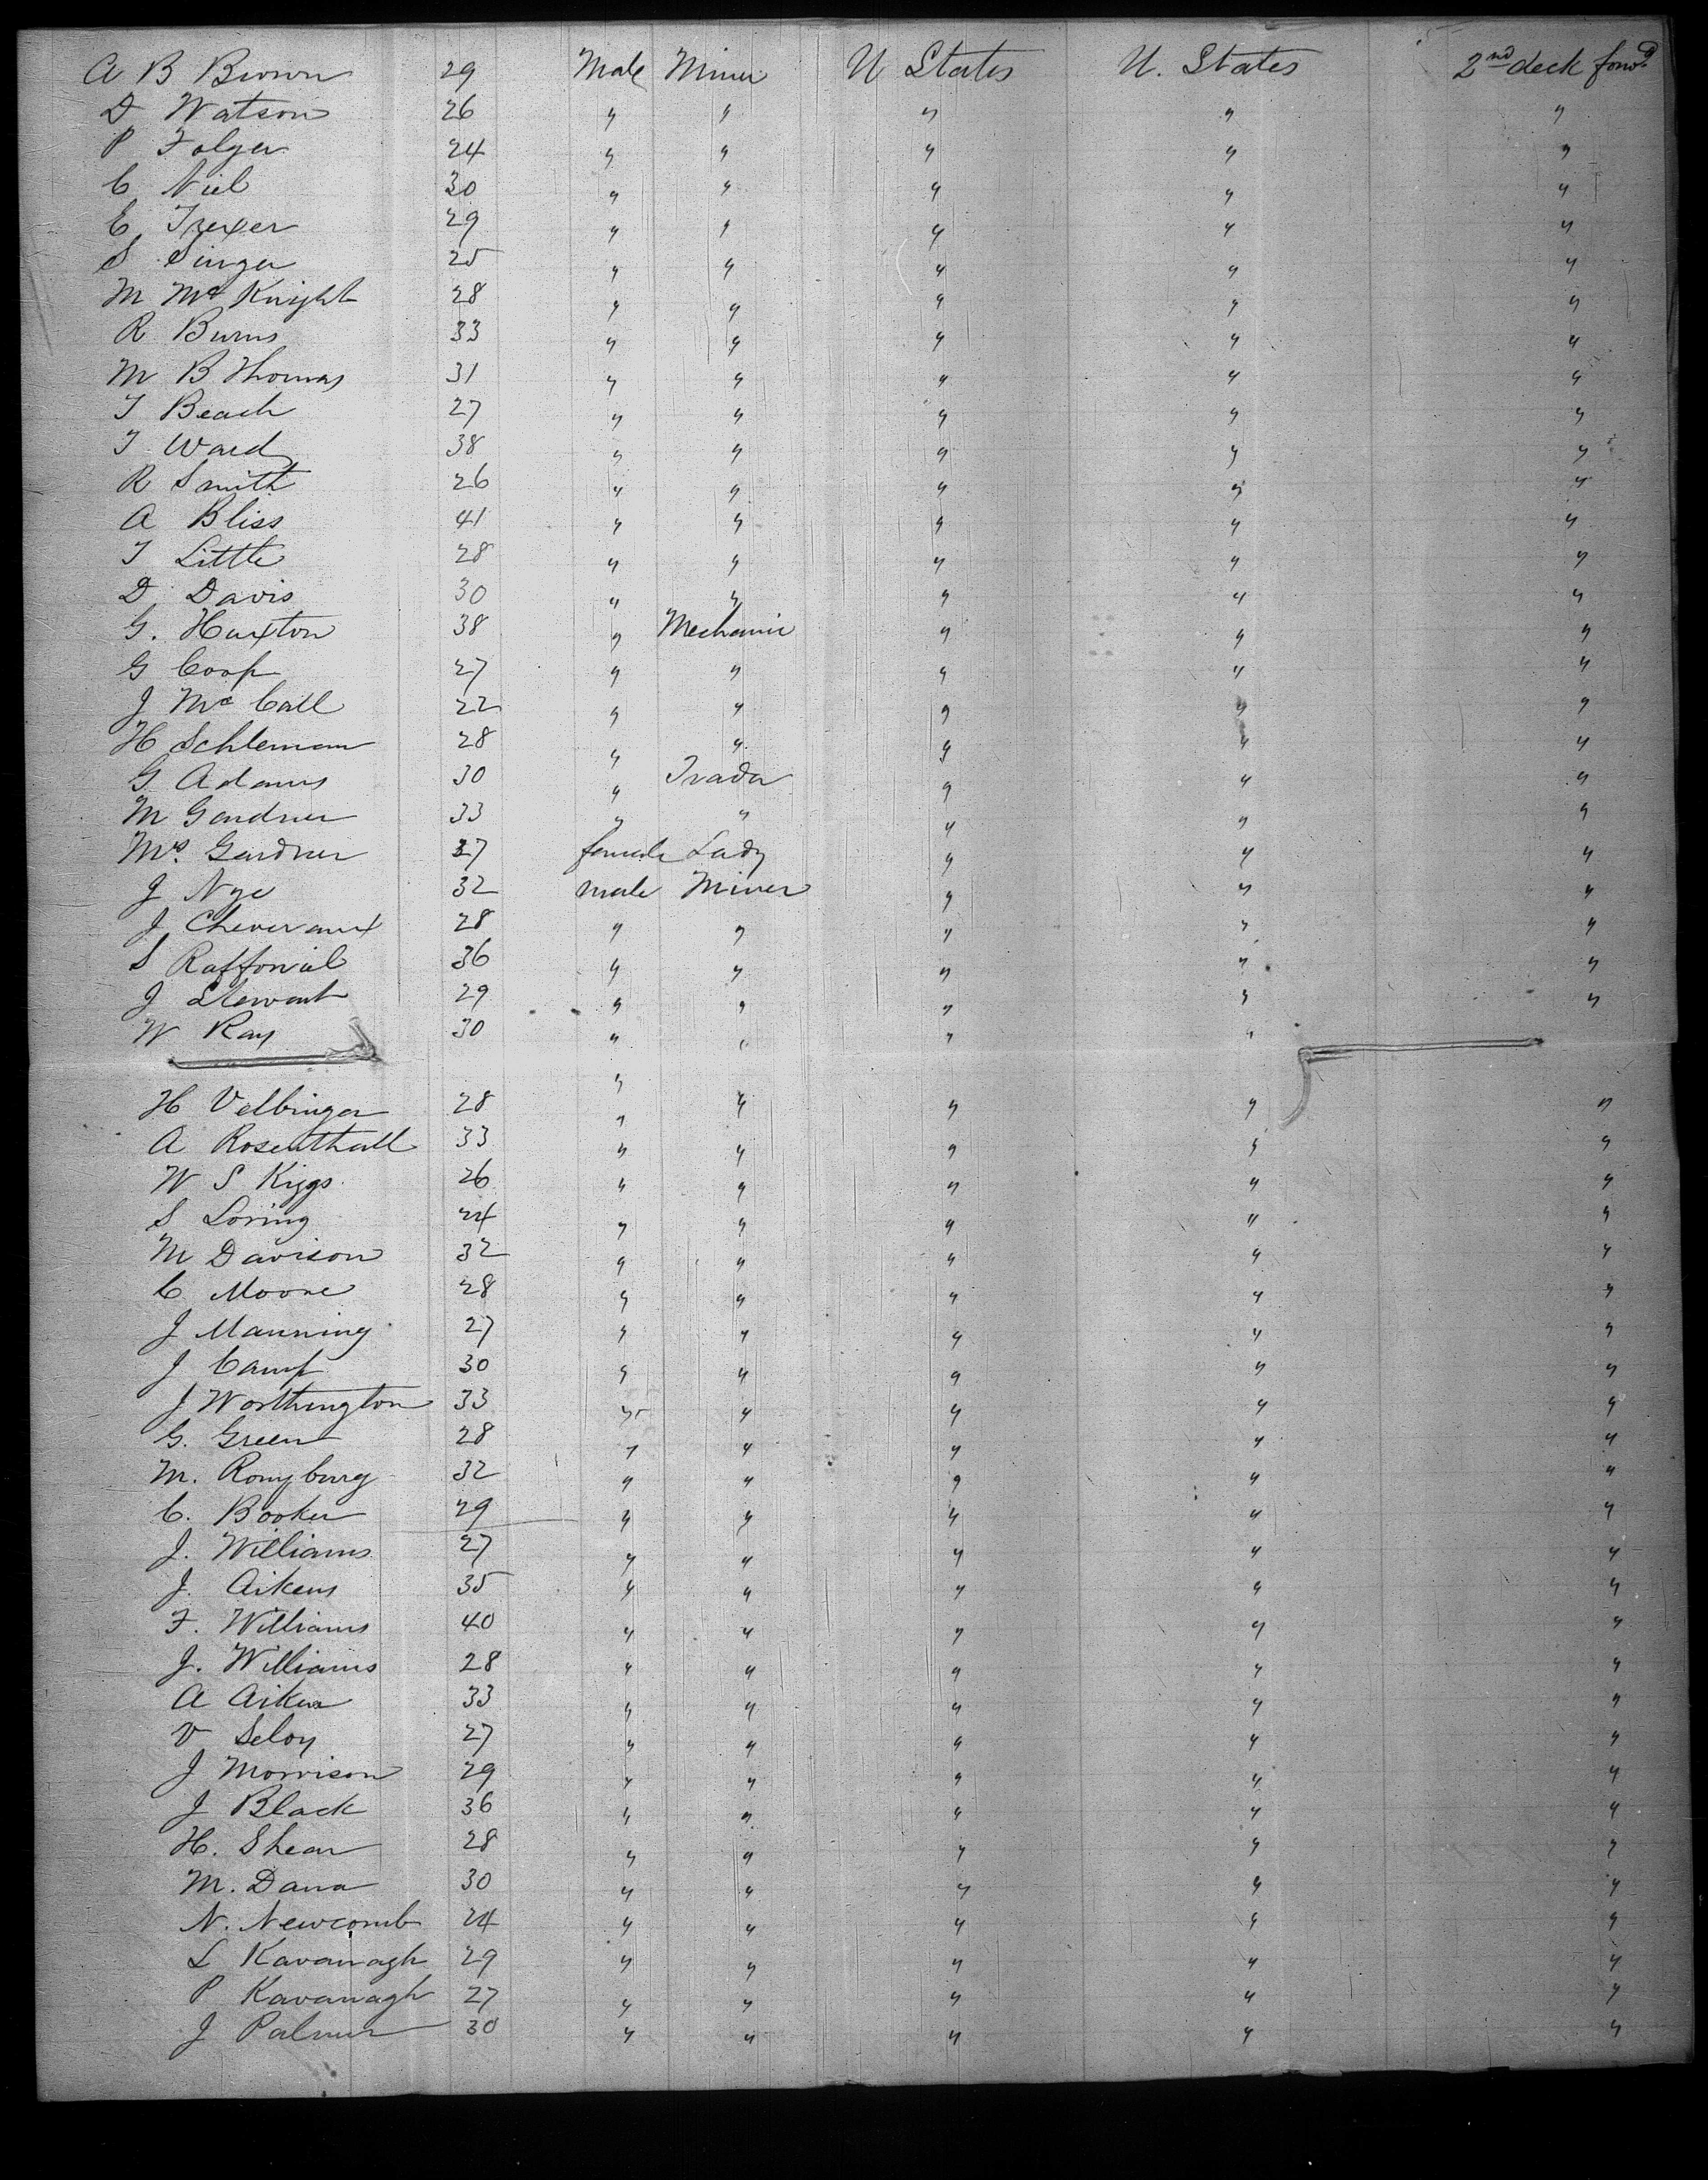 A B Brown 29 Male Miner U States U. States 2nd deck forwd
D Watson 26 " " " " "
P Folger 24 " " " " "
C Niel 30 " " " " "
E Trexer 29 " " " " "
S Singer 25 " " " " "
M McKnight 28 " " " " "
R Burns 33 " " " " "
M B Thomas 31 " " " " "
T Beach 27 " " " " "
T Ward 38 " " " " "
R Smith 26 " " " " "
A Bliss 41 " " " " "
T Little 28 " " " " "
D Davis 30 " " " " "
G. Huxton 38 " Mechanic " " "
G Coop 27 " " " " "
J McCall 22 " " " " "
H Schleman 28 " " " " "
G Adams 30 " Trader " " "
M Gardner 33 " " " " "
Mrs. Gardner 37 female Lady " " "
J Nye 32 male Miner " " "
J Cheveraux 28 " " " " "
S 36 " " " " "
J Stewart 29 " " " " "
W Ray 30 " " " "
"
H Velbinger 28 " " " " "
A Rosenthall 33 " " " " "
W S Kiggs 26 " " " " "
S Loring 24 " " " " "
M Davison 32 " " " " "
C Moore 28 " " " " "
J Manning 27 " " " " "
J Camp 30 " " " " "
J Worthington 33 " " " " "
G. Green 28 " " " " "
M. 32 " " " " "
C. Booker 29 " " " " "
J. Williams 27 " " " " "
J. Aikens 35 " " " " "
F. Williams 40 " " " " "
J. Williams 28 " " " " "
A Aiken 33 " " " " "
V Seloy 27 " " " " "
J Morrison 29 " " " " "
J Black 36 " " " " "
H. Shear 28 " " " " "
M. Dana 30 " " " " "
N. Newcomb 24 " " " " "
L Kavanagh 29 " " " " "
P Kavanagh 27 " " " " "
J Palmer 30 " " " " "